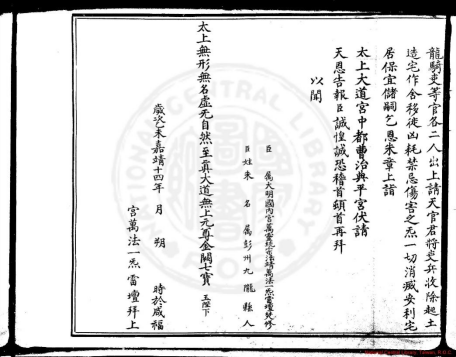 龍騎吏等官各二人出上請天官君將吏兵收除起土
造宅作舍移徙凶耗禁忌傷害之炁一切消滅安利宅
居保宜儲嗣乞恩朱章上詣
太上大道宮中都曹治典平宮伏請
天恩告報臣誠惶誠恐稽首頓首再拜
以聞
臣 属大明國內宮萬靈統宗法靖萬法一炁雷壇焚修
臣姓朱 名 属彭州九隴縣人
太上無形無名虛无自然至真大道無上元尊金闕七寶玉陛下
歲次未嘉靖十四年 月 朔 時於咸福
宮萬法一炁雷壇拜上